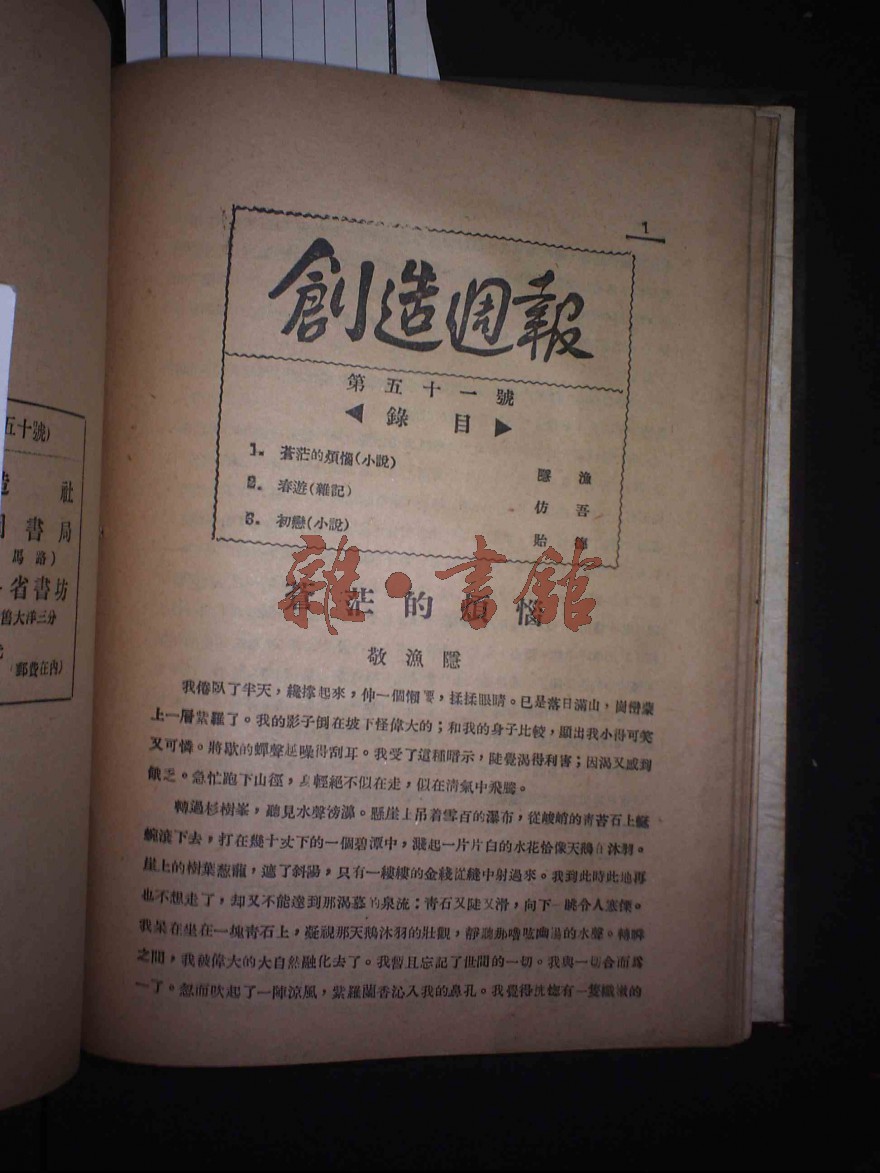 五十號)
造 社
書局
馬路)
省書坊
大洋三分
(郵費在內)
1
創造週報
第五十一號
◀ 錄目 ▶
1. 蒼茫的煩惱(小說) 隱漁
2. 春遊(雜記) 仿吾
3. 初戀(小說) 貽
雜·書館
蒼茫的煩惱
敬漁隱
我倦臥了半天,纔撐起來,伸一個懶要,揉揉眼睛。已是落日滿山,崗巒蒙
上一層紫羅了。我的影子倒在坡下怪偉大的;和我的身子比較,顯出我小得可笑
又可憐。將歇的蟬聲越噪得刮耳。我受了這種暗示,陡覺渴得利害;因渴又感到
餓乏。急忙跑下山徑,身輕絕不似在走,似在清氣中飛騰。
轉過杉樹峯,聽見水聲滂瀑。懸崖上吊着雪百的瀑布,從峻峭的靑苔石上蜒
蜿滾下去,打在幾十丈下的一個碧潭中,濺起一片片白的水花恰像天鵝在沐羽。
崖上的樹葉葱蘢,遮了斜陽,只有一縷縷的金綫從縫中射過來。我到此時此地再
也不想走了,却又不能達到那渴慕的泉流:靑石又陡又滑,向下一眺令人寒慄。
我呆在坐在一塊靑石上,凝視那天鵝沐羽的壯觀,靜聽那嘈吰幽湯的水聲。轉瞬
之間,我被偉大的大自然融化去了。我暫且忘記了世間的一切。我與一切合而爲
一了。忽而吹起了一陣涼風,紫羅蘭香沁入我的鼻孔。我覺得恍惚有一隻纖嫩的